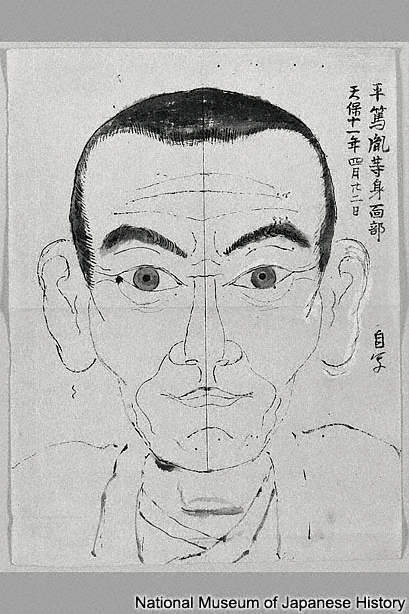 平篤胤等身面部
天保十一年四月廿二日
自写
National Museum of Japanese History